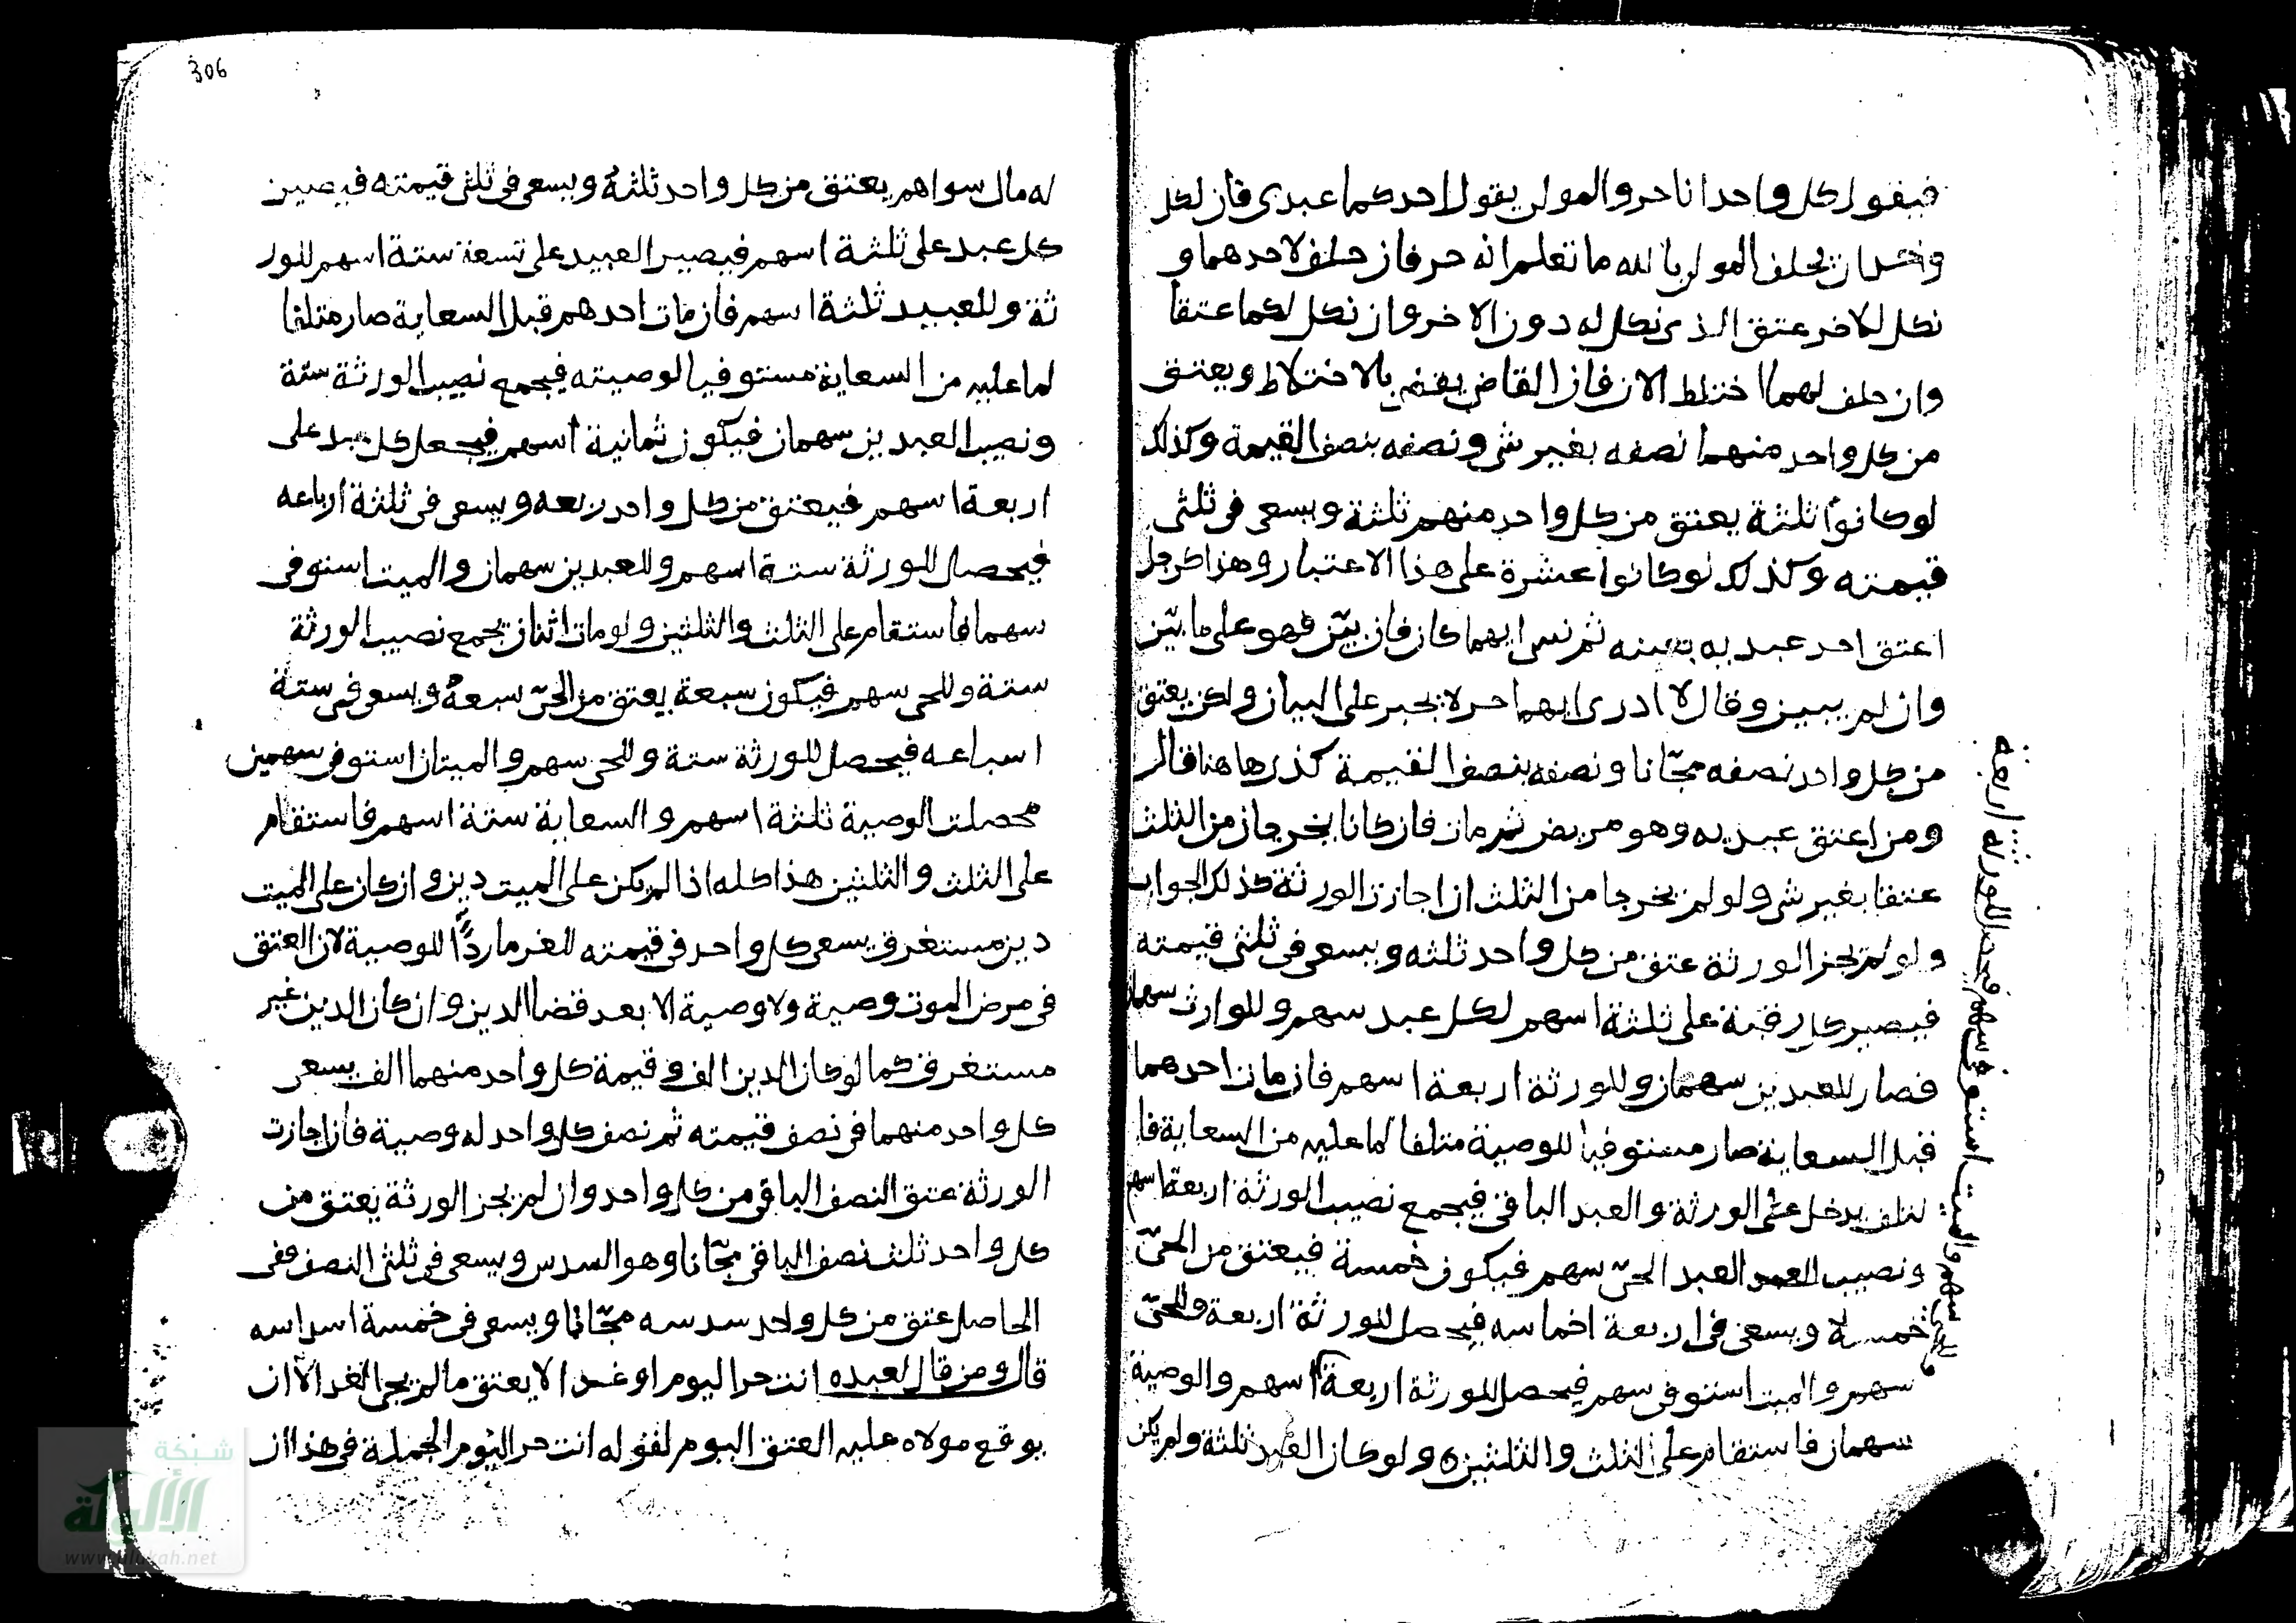 فيقول كل واحد انا حر والمولى يقول احدكما عبدى فان لكل
واحد ان يحلف المولى بالله ما تعلم انه حر فان حلف لاحدهما و
نكل للاخر عتق الذى نكل له دون الاخر وان نكل لكما عتقا
وان حلف لهما اختلط الان فان القاضى يقضى بالاختلاط ويعتق
من كل واحد منهما نصفه بغير شى ونصفه بنصف القيمة وكذلك
لو كانوا ثلثة يعتق من كل واحد منهم ثلثة ويسعى فى ثلثى
قيمته وكذلك لو كانوا عشرة على هذا الاعتبار وهذا كرجل
اعتق احد عبديه بعينه ثم نسى ايهما كان فان بيّن فهو على ما بيّن
وان لم يبين وقال لا ادرى ايهما حر لا يجبر على البيان ولكن يعتق
من كل واحد نصفه مجّانا ونصفه بنصف القيمة كذى هاهنا قال
ومن اعتق عبديه وهو مريض ثم مات فان كانا يخرجان من الثلث
عتقا بغير شى ولو لم يخرجا من الثلث ان اجازت الورثة كذلك الجواب
ولو لم يجز الورثة عتق من كل واحد ثلثه ويسعى فى ثلثى قيمته
فيصير كل رقبة على ثلثة اسهم لكل عبد سهم وللوارث سهمان
فصار للعبدين سهمان وللورثة اربعة اسهم فان مات احدهما
قبل السعاية صار مستوفيا للوصية متلفا لما عليه من السعاية فا
لتلف يدخل على الورثة والعبد الباقى فيجمع نصيب الورثة اربعة اسهم
ونصيب العبد الحىّ سهم فيكون خمسة فيعتق من الحىّ
خمسه ويسعى فى اربعة اخماسه فيحصل للورثة اربعة وللحىّ
سهم والميت استوفى سهم فيحصل للورثة اربعة اسهم والوصية
سهمان فاستقام على الثلث والثلثين ولو كان العبيد ثلثة ولم يكن
للورثة اربعة
سهم والميت استوفى سهم
306
له مال سواهم يعتق من كل واحد ثلثهُ ويسعى فى ثلثى قيمته فيصير
كل عبد على ثلثة اسهم فيصير العبيد على تسعة ستة اسهم للور
ثة وللعبيد ثلثة اسهم فان مات احدهم قبل السعاية صار متلفا
لما عليه من السعاية مستوفيا لوصيته فيجمع نصيب الورثة ستة
ونصيب العبدين سهمان فيكون ثمانية اسهم فيجعل كل عبد على
اربعة اسهم فيعتق من كل واحد ربعه ويسعى فى ثلثة ارباعه
فيحصل للورثة ستة اسهم وللعبدين سهمان والميت استوفى
سهما فاستقام على الثلث والثلثين ولو مات اثنان يجمع نصيب الورثة
ستة وللحى سهم فيكون سبعة يعتق من الحىّ سبعهُ ويسعى فى ستة
اسباعه فيحصل للورثة ستة وللحى سهم والميتان استوفى سهمين
فحصلت الوصية ثلثة اسهم والسعاية ستة اسهم فاستقام
على الثلث والثلثين هذا كله اذا لم يكن على الميت دين وان كان على الميت
دين مستغرق يسعى كل واحد فى قيمته للغرما ردًّا للوصية لان العتق
فى مرض الموت وصية ولا وصية الا بعد قضا الدين وان كان الدين غير
مستغرق كما لو كان الدين الف وقيمة كل واحد منهما الف يسعى
كل واحد منهما فى نصف قيمته ثم نصف كل واحد له وصية فان اجازت
الورثة عتق النصف الباقى من كل واحد وان لم يجز الورثة يعتق من
كل واحد ثلث نصف الباقى مجّانا وهو السدس ويسعى فى ثلثى النصف ففى
الحاصل عتق من كل واحد سدسه مجّانا ويسعى فى خمسة اسداسه
قال ومن قال لعبده انت حر اليوم او غدا لا يعتق ما لم يجى الغد الا ان
يوقع مولاه عليه العتق اليوم لقوله انت حر اليوم الجملة فى هذا ان
شبكة
الألوكة
www.alukah.net